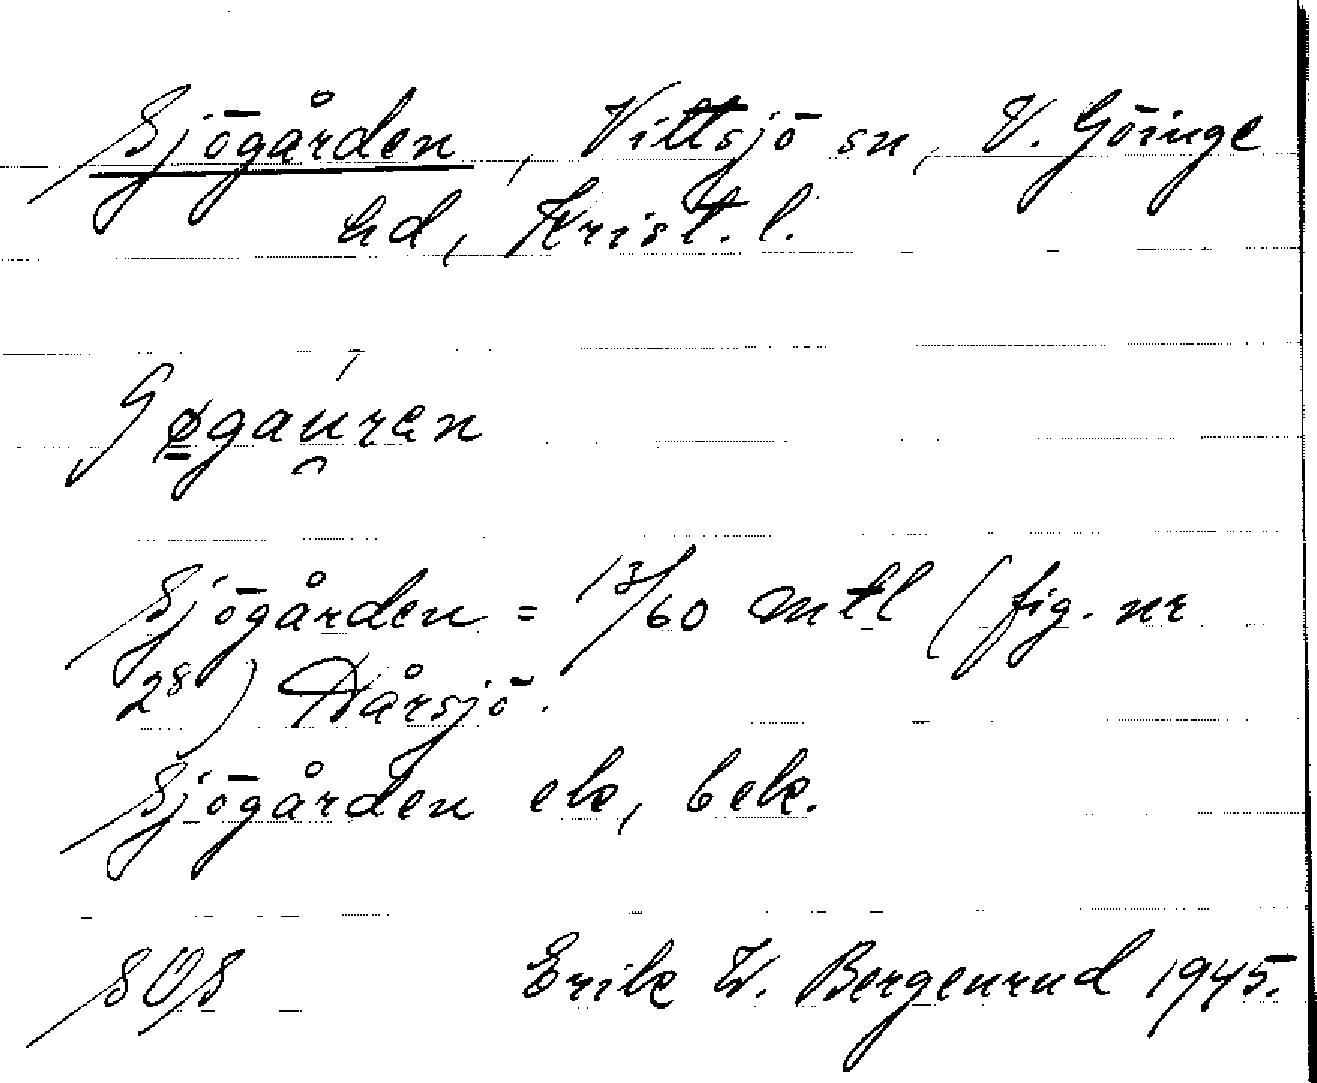 Sjögården, Vittsjö sn, V. Göinge
hd, Krist. l.
Sjögården = 13/60 mtl (fig. nr
28) Dårsjö.
Sjögården ek, bek.
SOS Erik W. Bergenrud 1945.